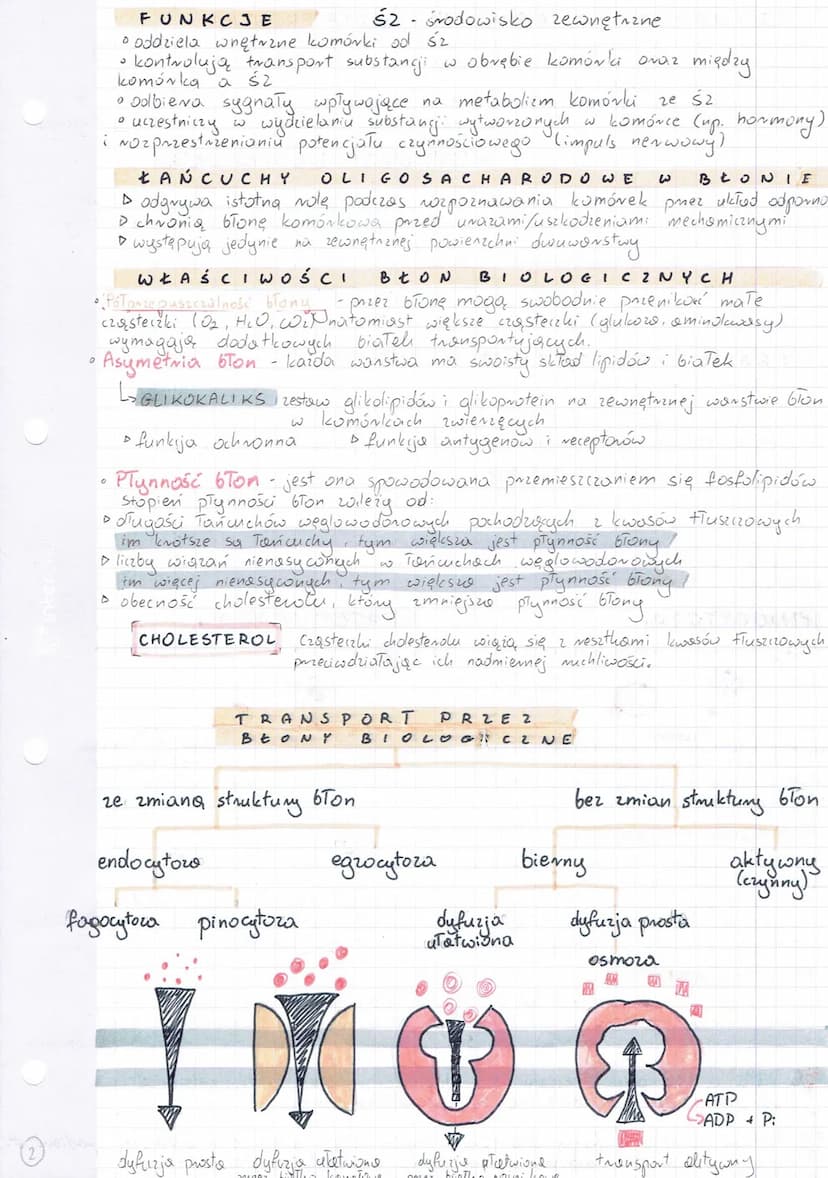 FUNKCJE
ŚZ - środowisko zewnętrzne
• oddziela wnętrzne komórki od ŚZ
• kontrolują transport substancji w obrębie komórki oraz między
komórką a ŚZ
• odbiera sygnały wpływające na metabolizm komórki ze ŚZ
• uczestniczy w wydzielaniu substancji wytworzonych w komórce (np. hormony)
i rozprzestrzenianiu potencjału czynnościowego (impuls nerwowy)
ŁAŃCUCHY OLIGOSACHARODOWE W BŁONIE
▷ odgrywa istotną rolę podczas rozpoznawania komórek przez układ odporno
▷ chronią błonę komórkową przed urazami/uszkodzeniami mechanicznymi
▷ występują jedynie na zewnętrznej powierzchni dwuwarstwy
WŁAŚCIWOŚCI BŁON BIOLOGICZNYCH
• Półprzepuszczalność błony - przez błonę mogą swobodnie przenikać małe
cząsteczki (O2, H2O, CO2) natomiast większe cząsteczki (glukoza, aminokwasy)
wymagają dodatkowych białek transportujących.
• Asymetria błon - każda warstwa ma swoisty skład lipidów i białek
GLIKOKALIKS zestaw glikolipidów i glikoprotein na zewnętrznej warstwie błon
w komórkach zwierzęcych
▷ funkcja ochronna ▷ funkcje antygenów i receptorów
• Płynność błon - jest ona spowodowana przemieszczaniem się fosfolipidów
stopień płynności błon zależy od:
▷ długości łańcuchów węglowodorowych pochodzących z kwasów tłuszczowych
im krótsze są łańcuchy, tym większa jest płynność błony
▷ liczby wiązań nienasyconych w łańcuchach węglowodorowych
im więcej nienasyconych, tym większa jest płynność błony
▷ obecność cholesterolu, który zmniejsza płynność błony
CHOLESTEROL cząsteczki cholesterolu wiążą się z resztkami kwasów tłuszczowych
przeciwdziałając ich nadmiernej ruchliwości.
TRANSPORT PRZEZ
BŁONY BIOLOGICZNE
ze zmianą struktury błon
bez zmian struktury błon
endocytoza
egzocytoza
bierny
aktywny
(czynny)
fagocytoza
pinocytoza
dyfuzja
ułatwiona
dyfuzja prosta
osmoza
ATP
ADP + Pi
2
dyfuzja prosta
dyfuzja ułatwiona
dyfuzja ułatwiona
transport aktywny